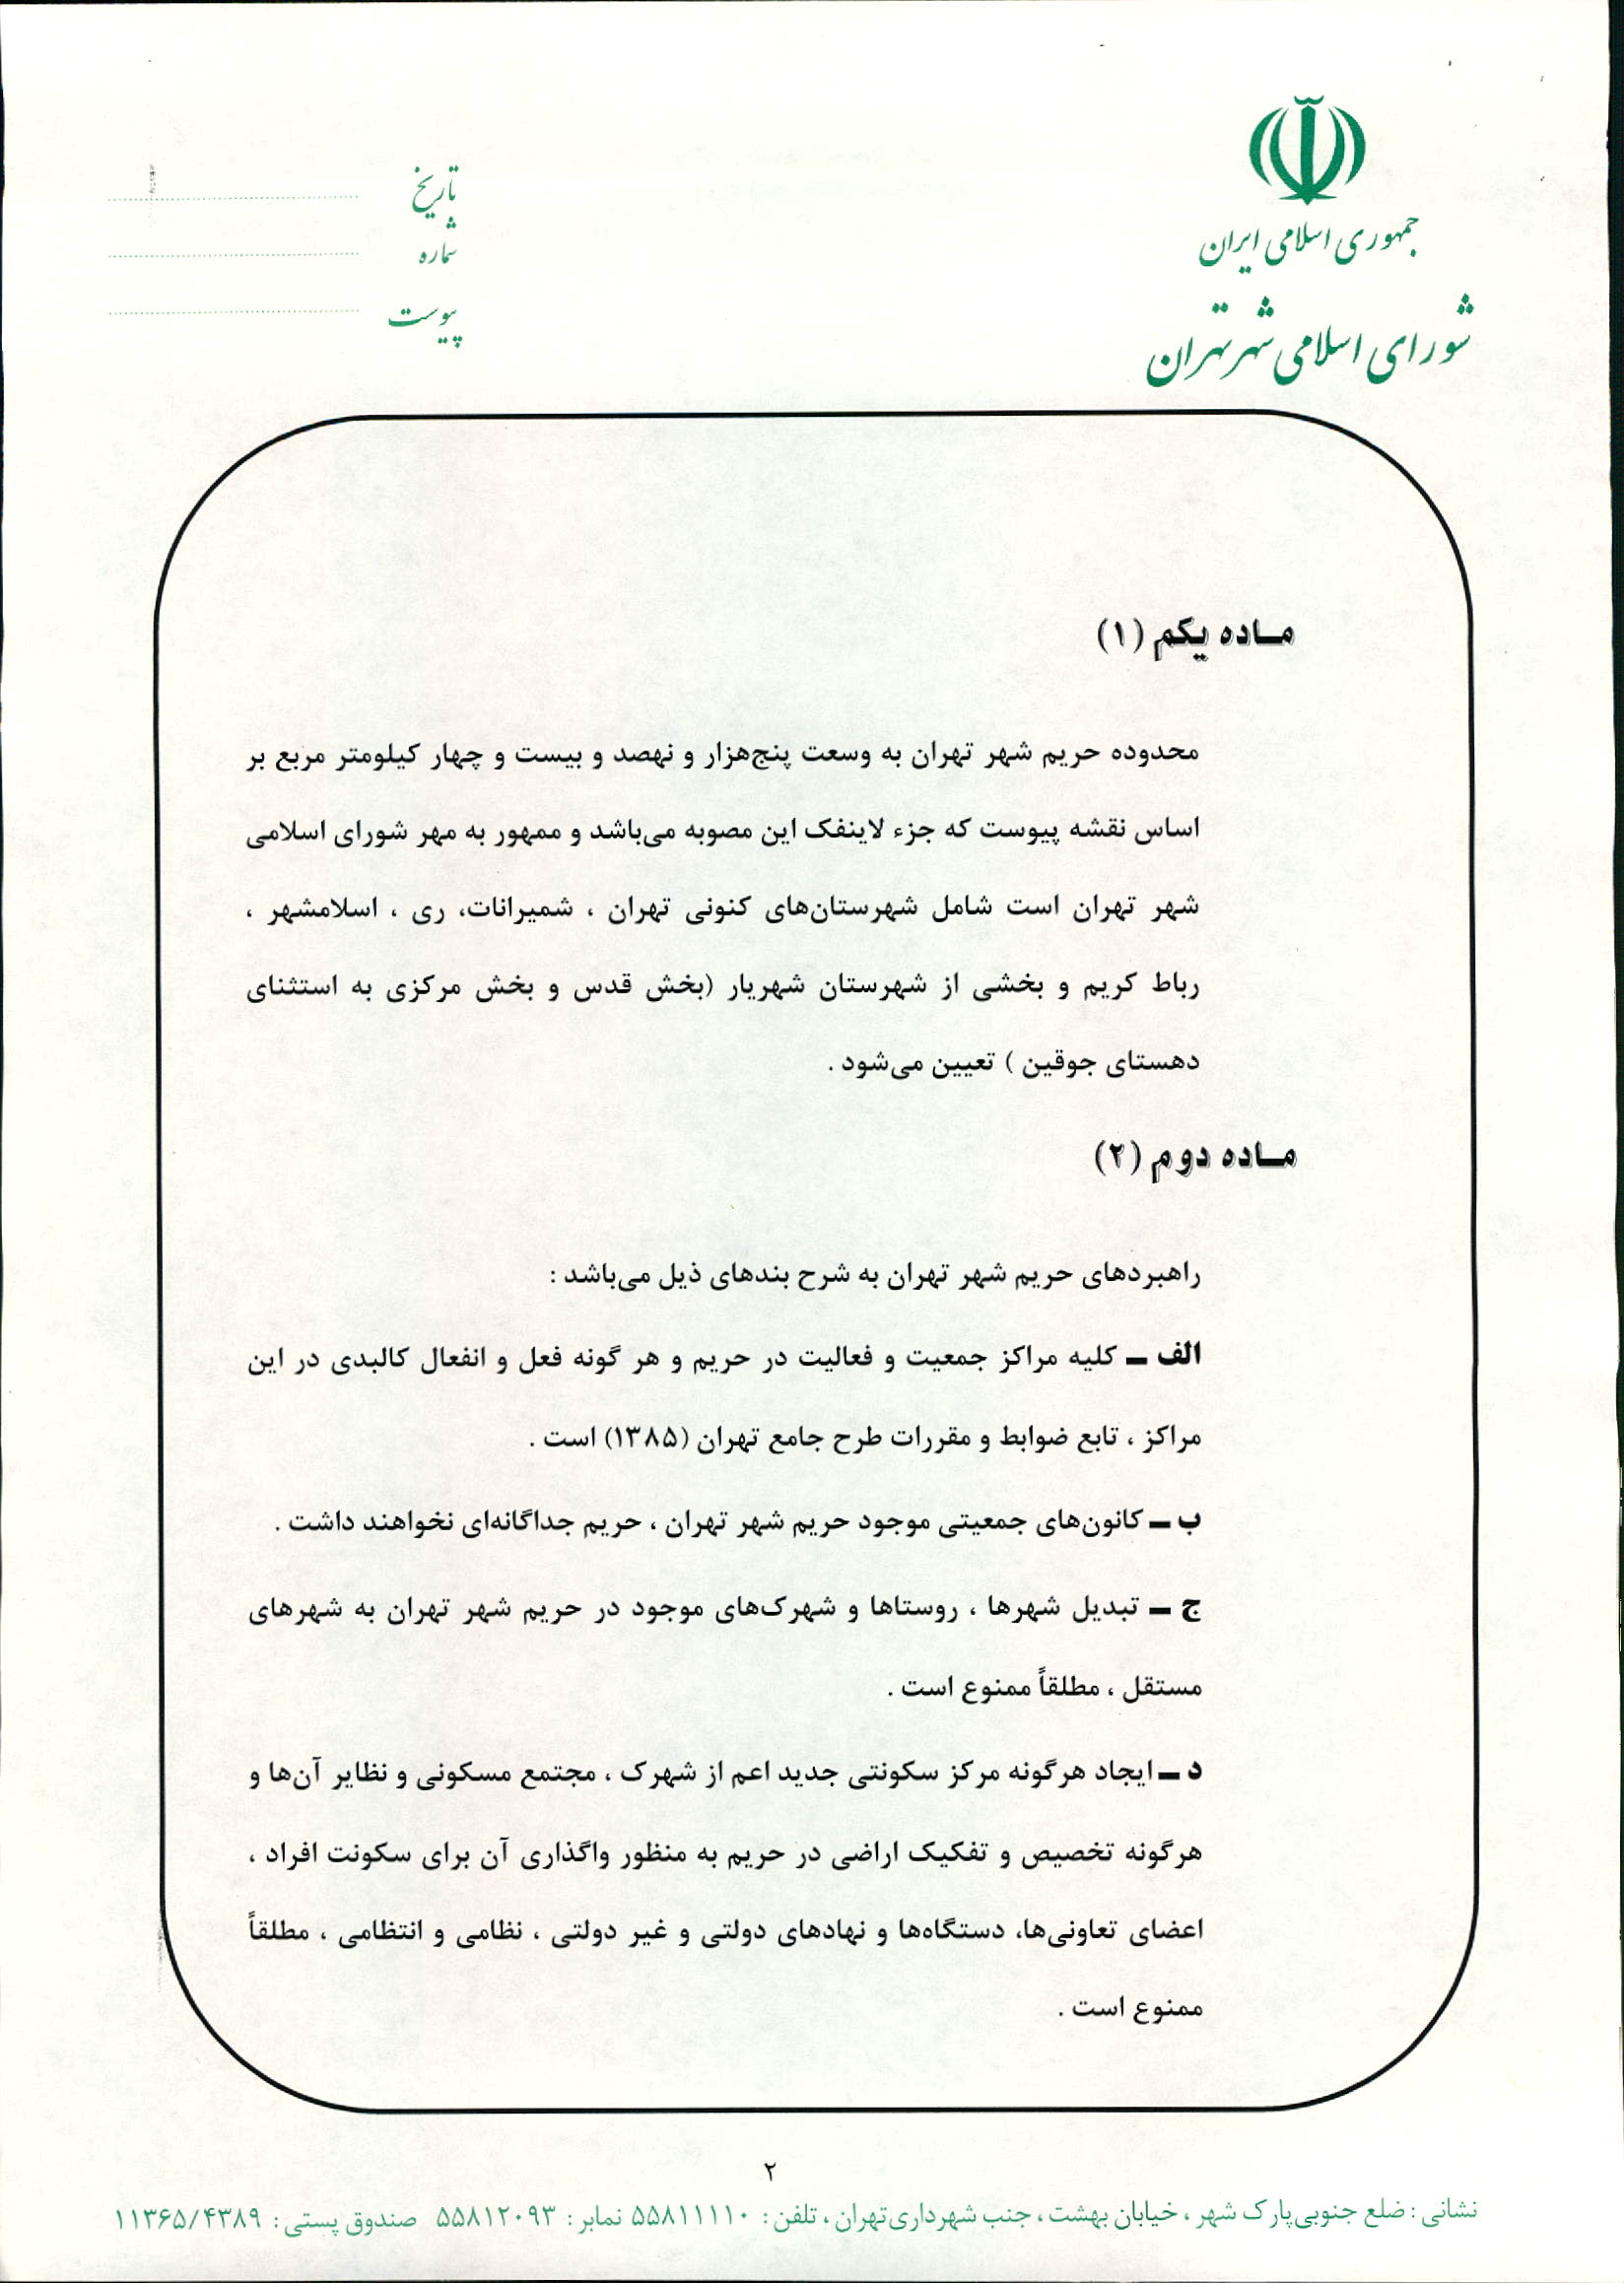 جمهوری اسلامی ایران
شورای اسلامی شهر تهران
تاریخ
شماره
پیوست
مـاده یکم (۱)
محدوده حریم شهر تهران به وسعت پنج‌هزار و نهصد و بیست و چهار کیلومتر مربع بر
اساس نقشه پیوست که جزء لاینفک این مصوبه می‌باشد و ممهور به مهر شورای اسلامی
شهر تهران است شامل شهرستان‌های کنونی تهران ، شمیرانات، ری ، اسلامشهر ،
رباط کریم و بخشی از شهرستان شهریار (بخش قدس و بخش مرکزی به استثنای
دهستای جوقین ) تعیین می‌شود .
مـاده دوم (۲)
راهبردهای حریم شهر تهران به شرح بندهای ذیل می‌باشد :
الف ــ کلیه مراکز جمعیت و فعالیت در حریم و هر گونه فعل و انفعال کالبدی در این
مراکز ، تابع ضوابط و مقررات طرح جامع تهران (۱۳۸۵) است .
ب ــ کانون‌های جمعیتی موجود حریم شهر تهران ، حریم جداگانه‌ای نخواهند داشت .
ج ــ تبدیل شهرها ، روستاها و شهرک‌های موجود در حریم شهر تهران به شهرهای
مستقل ، مطلقاً ممنوع است .
د ــ ایجاد هرگونه مرکز سکونتی جدید اعم از شهرک ، مجتمع مسکونی و نظایر آن‌ها و
هرگونه تخصیص و تفکیک اراضی در حریم به منظور واگذاری آن برای سکونت افراد ،
اعضای تعاونی‌ها، دستگاه‌ها و نهادهای دولتی و غیر دولتی ، نظامی و انتظامی ، مطلقاً
ممنوع است .
۲
نشانی : ضلع جنوبی‌پارک شهر ، خیابان بهشت ، جنب شهرداری‌تهران ، تلفن : ۵۵۸۱۱۱۱۰ نمابر : ۵۵۸۱۲۰۹۳ صندوق پستی : ۱۱۳۶۵/۴۳۸۹